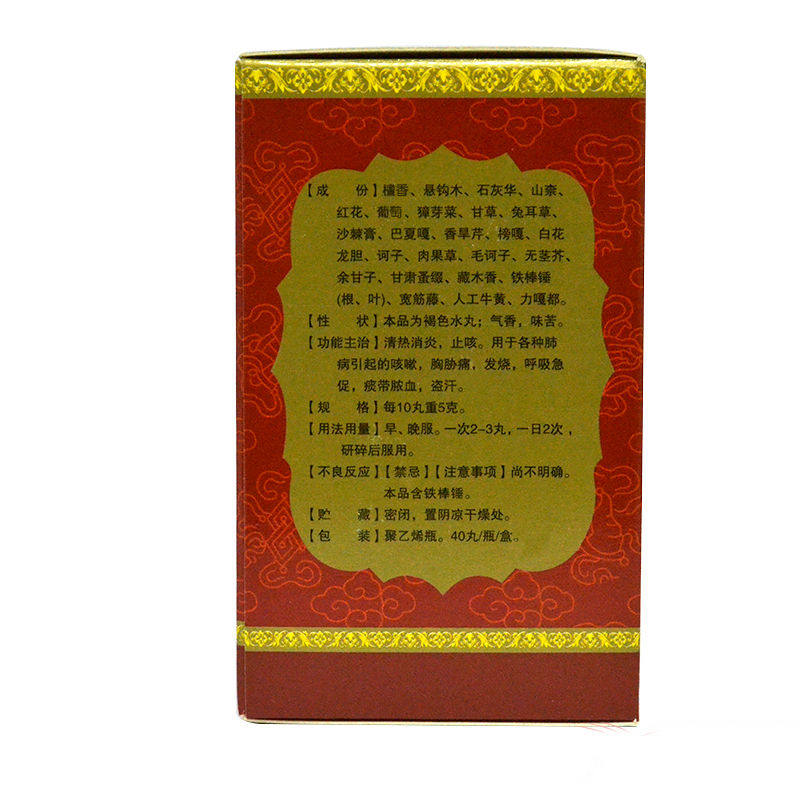 【成 份】檀香、悬钩木、石灰华、山柰、
红花、葡萄、獐芽菜、甘草、兔耳草、
沙棘膏、巴夏嘎、香旱芹、榜嘎、白花
龙胆、诃子、肉果草、毛诃子、无茎芥、
余甘子、甘肃蚤缀、藏木香、铁棒锤
(根、叶)、宽筋藤、人工牛黄、力嘎都。
【性 状】本品为褐色水丸；气香，味苦。
【功能主治】清热消炎，止咳。用于各种肺
病引起的咳嗽，胸胁痛，发烧，呼吸急
促，痰带脓血，盗汗。
【规 格】每10丸重5克。
【用法用量】早、晚服。一次2-3丸，一日2次，
研碎后服用。
【不良反应】【禁忌】【注意事项】尚不明确。
本品含铁棒锤。
【贮 藏】密闭，置阴凉干燥处。
【包 装】聚乙烯瓶。40丸/瓶/盒。